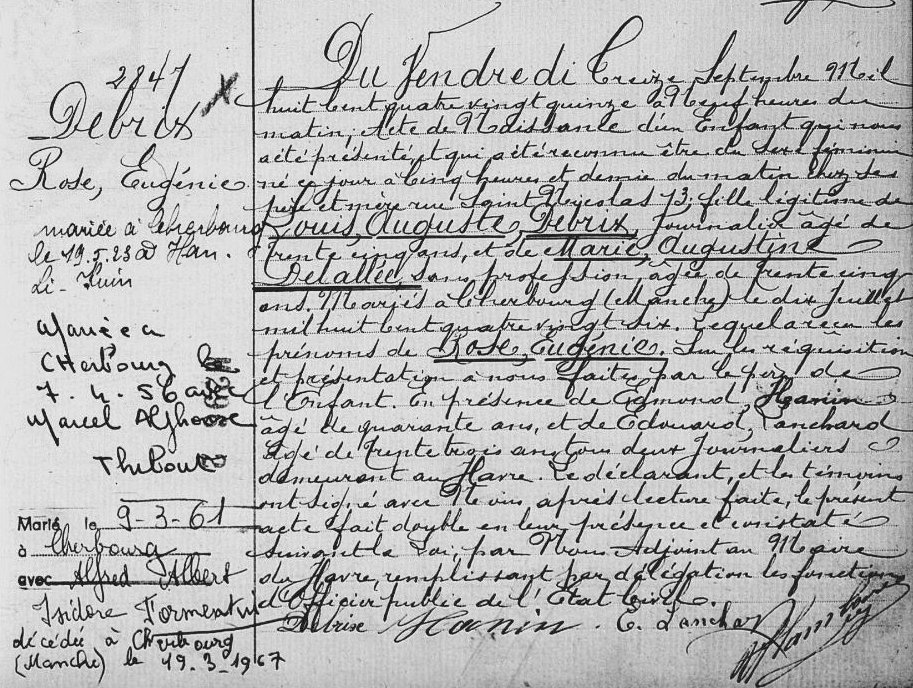 2847
Debrix
Rose, Eugénie
mariée à Cherbourg
le 19.5.23 à Han.
Li-Kuin
Mariée à
Cherbourg le
7. 4. 56 avec
Marcel Alphonse
Thibout
Marié le 9-3-61
à Cherbourg
avec Alfred Albert
Isidore
décédée à Cherbourg
(Manche) le 19.3_1967
Du Vendredi Treize Septembre Mil
huit Cent quatre vingt quinze à Neuf heures du
matin; Acte de Naissance d'un Enfant qui nous
a été présenté, et qui a été reconnu être du sexe féminin
né ce jour à Cinq heures et demie du matin chez ses
père et mère rue Saint Nicolas 73; fille légitime de
Louis, Auguste, Debrix, Journalier âgé de
trente cinq ans, et de Marie, Augustine
Delallée, sans profession, âgée de trente cinq
ans. Mariés à Cherbourg (Manche) le dix Juillet
mil huit Cent quatre vingt six. Lequel a reçu les
prénoms de Rose, Eugénie. Sur les réquisition
et présentation à nous faites par le père de
l'Enfant. En présence de Edmond, Hanin
âgé de quarante ans, et de Edouard, Lanchard
âgé de Trente trois ans tous deux Journaliers
demeurant au Havre. Le déclarant, et les témoins
ont signé avec Nous, après lecture faite, le présent
acte fait double en leur présence et constaté
suivant la Loi, par Nous Adjoint au Maire
du Havre, remplissant par délégation les fonctions
d'Officier public de l'Etat Civil.
Debrix Hanin. E. Lanchard